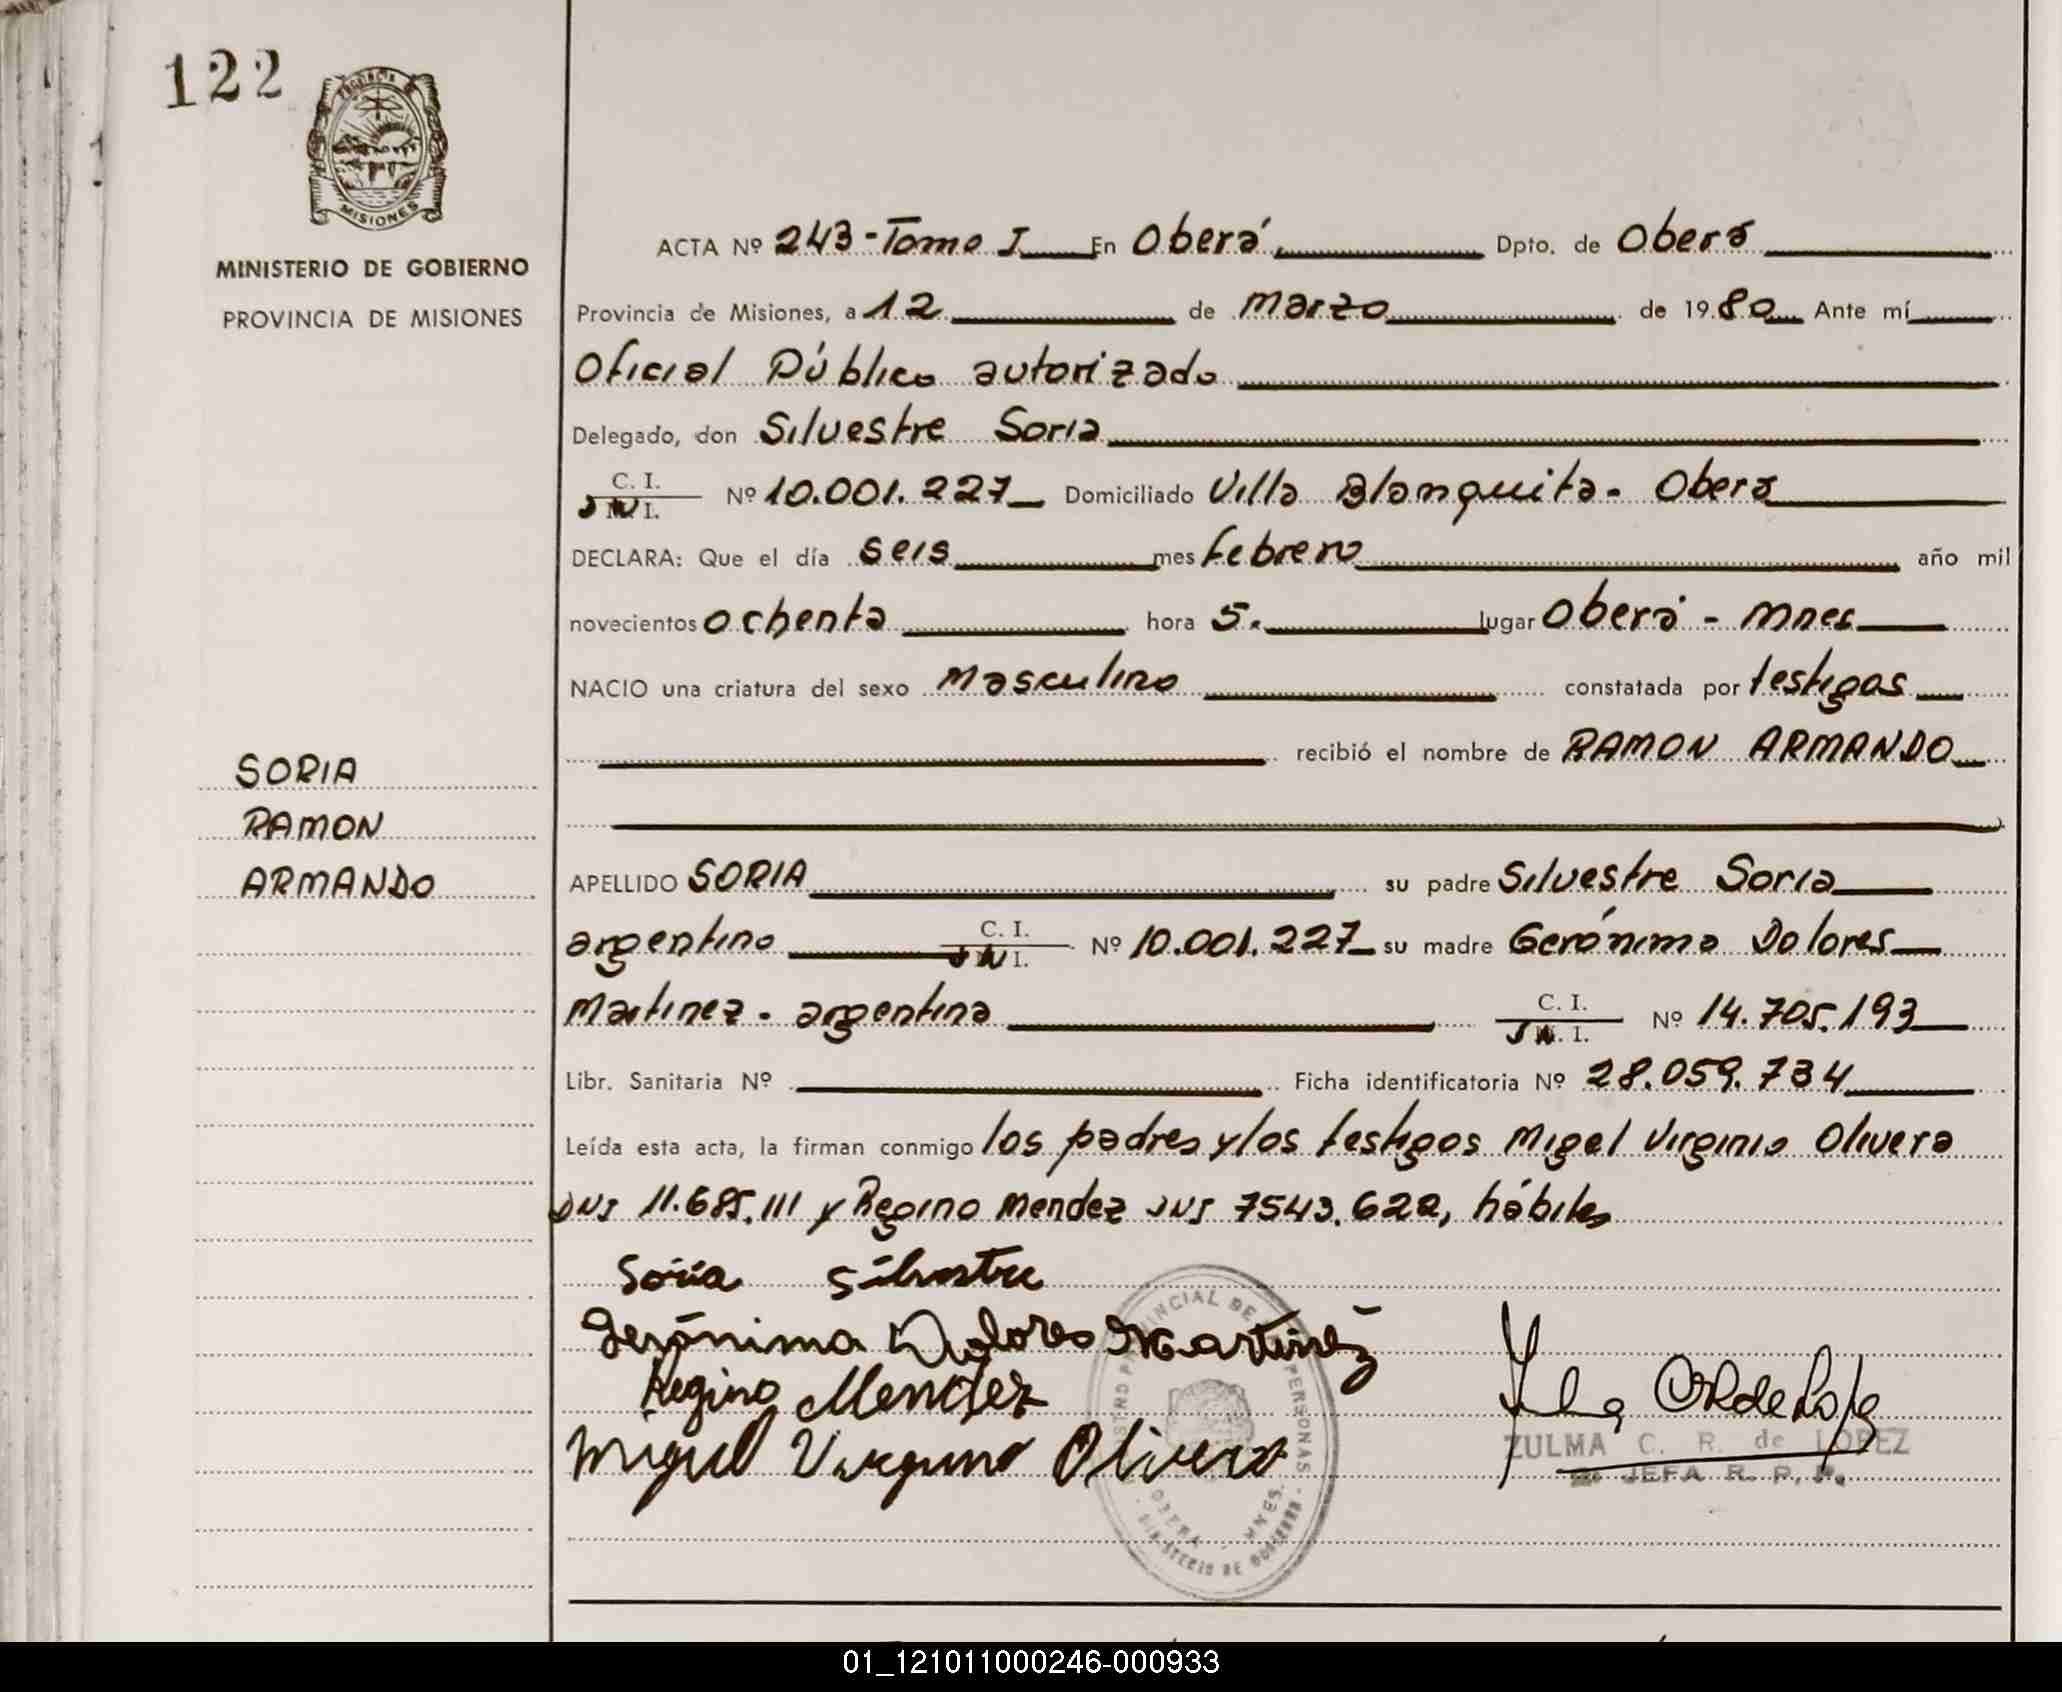 122
PROVINCIA
MISIONES
MINISTERIO DE GOBIERNO
PROVINCIA DE MISIONES
SORIA
RAMON
ARMANDO
ACTA Nº 243-Tomo I En Oberá, Dpto. de Oberá
Provincia de Misiones, a 12 de Marzo de 1980 Ante mí
Oficial Público autorizado
Delegado, don Silvestre Soria
C. I.
DNI Nº 10.001.227 Domiciliado Villa Blanquita - Oberá
DECLARA: Que el día seis mes febrero año mil
novecientos ochenta hora 5. lugar Oberá - Mnes
NACIO una criatura del sexo Masculino constatada por testigos
recibió el nombre de RAMON ARMANDO
APELLIDO SORIA su padre Silvestre Soria
argentino C. I. DNI Nº 10.001.227 su madre Gerónima Dolores
Martinez - argentina C. I. DNI Nº 14.705.193
Libr. Sanitaria Nº Ficha identificatoria Nº 28.059.734
Leída esta acta, la firman conmigo los padres y los testigos Migel Virginio Olivera
DNI 11.685.111 y Regino Mendez DNI 7543.622, hábiles
Soria Silvestre
Gerónima Dolores Martinez
Regino Mendez
Miguel Virginio Olivera
ZULMA C. R. de LOPEZ
JEFA R. P. P.
PROVINCIAL DE PERSONAS
OBERA - MNES.
MINISTERIO DE GOBIERNO
01_121011000246-000933